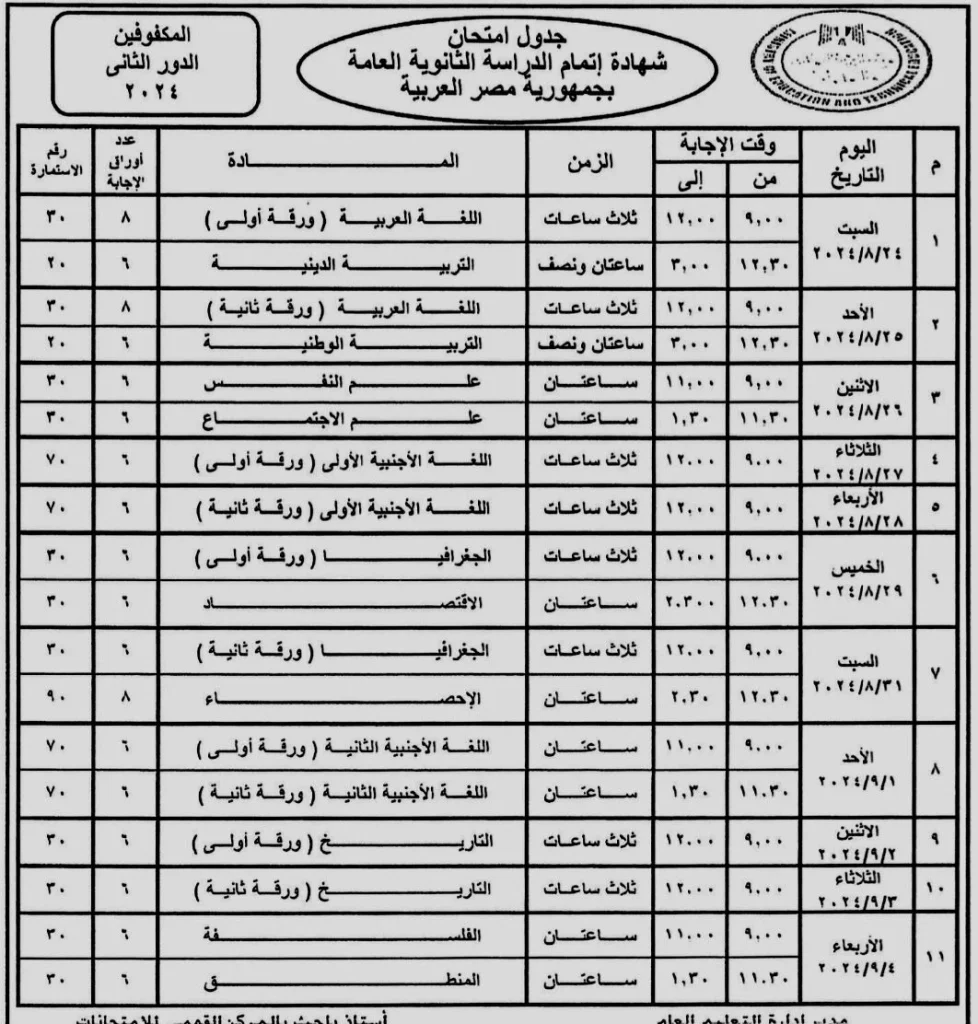 جدول امتحان
شهادة إتمام الدراسة الثانوية العامة
بجمهورية مصر العربية
المكفوفين
الدور الثانى
٢٠٢٤
EDUCATION AND TECHNICAL
م | اليوم التاريخ | وقت الإجابة من | إلى | الزمن | المــــادة | عدد أوراق الإجابة | رقم الاستمارة
١ | السبت ٢٠٢٤/٨/٢٤ | ٩,٠٠ | ١٢,٠٠ | ثلاث ساعات | اللغة العربية ( ورقة أولى ) | ٨ | ٣٠
١٢,٣٠ | ٣,٠٠ | ساعتان ونصف | التربية الدينية | ٦ | ٢٠
٢ | الأحد ٢٠٢٤/٨/٢٥ | ٩,٠٠ | ١٢,٠٠ | ثلاث ساعات | اللغة العربية ( ورقة ثانية ) | ٨ | ٣٠
١٢,٣٠ | ٣,٠٠ | ساعتان ونصف | التربية الوطنية | ٦ | ٢٠
٣ | الاثنين ٢٠٢٤/٨/٢٦ | ٩,٠٠ | ١١,٠٠ | ساعتان | علم النفس | ٦ | ٣٠
١١,٣٠ | ١,٣٠ | ساعتان | علم الاجتماع | ٦ | ٣٠
٤ | الثلاثاء ٢٠٢٤/٨/٢٧ | ٩,٠٠ | ١٢,٠٠ | ثلاث ساعات | اللغة الأجنبية الأولى ( ورقة أولى ) | ٦ | ٧٠
٥ | الأربعاء ٢٠٢٤/٨/٢٨ | ٩,٠٠ | ١٢,٠٠ | ثلاث ساعات | اللغة الأجنبية الأولى ( ورقة ثانية ) | ٦ | ٧٠
٦ | الخميس ٢٠٢٤/٨/٢٩ | ٩,٠٠ | ١٢,٠٠ | ثلاث ساعات | الجغرافيا ( ورقة أولى ) | ٦ | ٣٠
١٢,٣٠ | ٢,٣٠٠ | ساعتان | الاقتصاد | ٦ | ٣٠
٧ | السبت ٢٠٢٤/٨/٣١ | ٩,٠٠ | ١٢,٠٠ | ثلاث ساعات | الجغرافيا ( ورقة ثانية ) | ٦ | ٣٠
١٢,٣٠ | ٢,٣٠ | ساعتان | الإحصاء | ٨ | ٩٠
٨ | الأحد ٢٠٢٤/٩/١ | ٩,٠٠ | ١١,٠٠ | ساعتان | اللغة الأجنبية الثانية ( ورقة أولى ) | ٦ | ٧٠
١١,٣٠ | ١,٣٠ | ساعتان | اللغة الأجنبية الثانية ( ورقة ثانية ) | ٦ | ٧٠
٩ | الاثنين ٢٠٢٤/٩/٢ | ٩,٠٠ | ١٢,٠٠ | ثلاث ساعات | التاريخ ( ورقة أولى ) | ٦ | ٣٠
١٠ | الثلاثاء ٢٠٢٤/٩/٣ | ٩,٠٠ | ١٢,٠٠ | ثلاث ساعات | التاريخ ( ورقة ثانية ) | ٦ | ٣٠
١١ | الأربعاء ٢٠٢٤/٩/٤ | ٩,٠٠ | ١١,٠٠ | ساعتان | الفلسفة | ٦ | ٣٠
١١,٣٠ | ١,٣٠ | ساعتان | المنطق | ٦ | ٣٠
مدير إدارة التعليم العام
أستاذ باحث بالمركز القومى للامتحانات